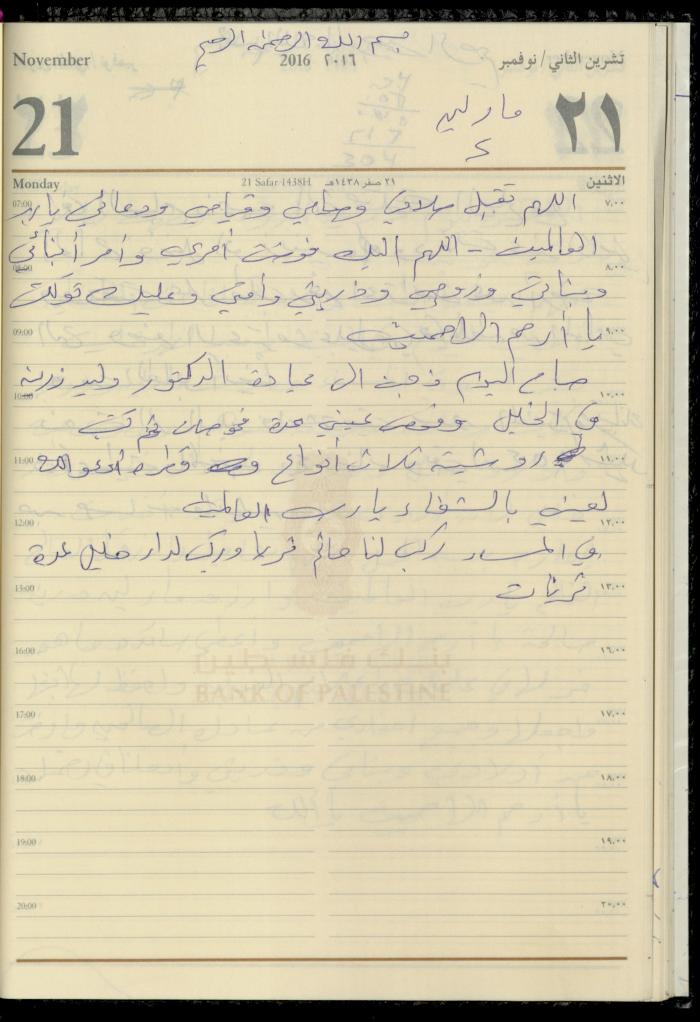 بسم الله الرحمن الرحيم
November 2016 ٢٠١٦ تشرين الثاني / نوفمبر
21 ٢١
Monday 21 Safar 1438H ٢١ صفر ١٤٣٨هـ الاثنين
اللهم تقبل صلاتي وصيامي وقيامي ودعائي يا رب
العالمين - اللهم اليك فوضت أمري وأمر أبنائي
وبناتي وزوجي وذريتي وأمتي وعليك توكلت
يا أرحم الراحمين
صباح اليوم ذهبت الى عيادة الدكتور وليد
في الخليل وفحص عيني عدة فحوصات ثم كتب
روشيتة ثلاث أنواع قطرة أدعو الله
لعيني بالشفاء يا رب العالمين
في المساء ركب لنا حاتم وركب لدار خليل عدة
07:00 ٧,٠٠
08:00 ٨,٠٠
09:00 ٩,٠٠
10:00 ١٠,٠٠
11:00 ١١,٠٠
12:00 ١٢,٠٠
13:00 ١٣,٠٠
16:00 ١٦,٠٠
بنك فلسطين
BANK OF PALESTINE
17:00 ١٧,٠٠
18:00 ١٨,٠٠
19:00 ١٩,٠٠
20:00 ٢٠,٠٠